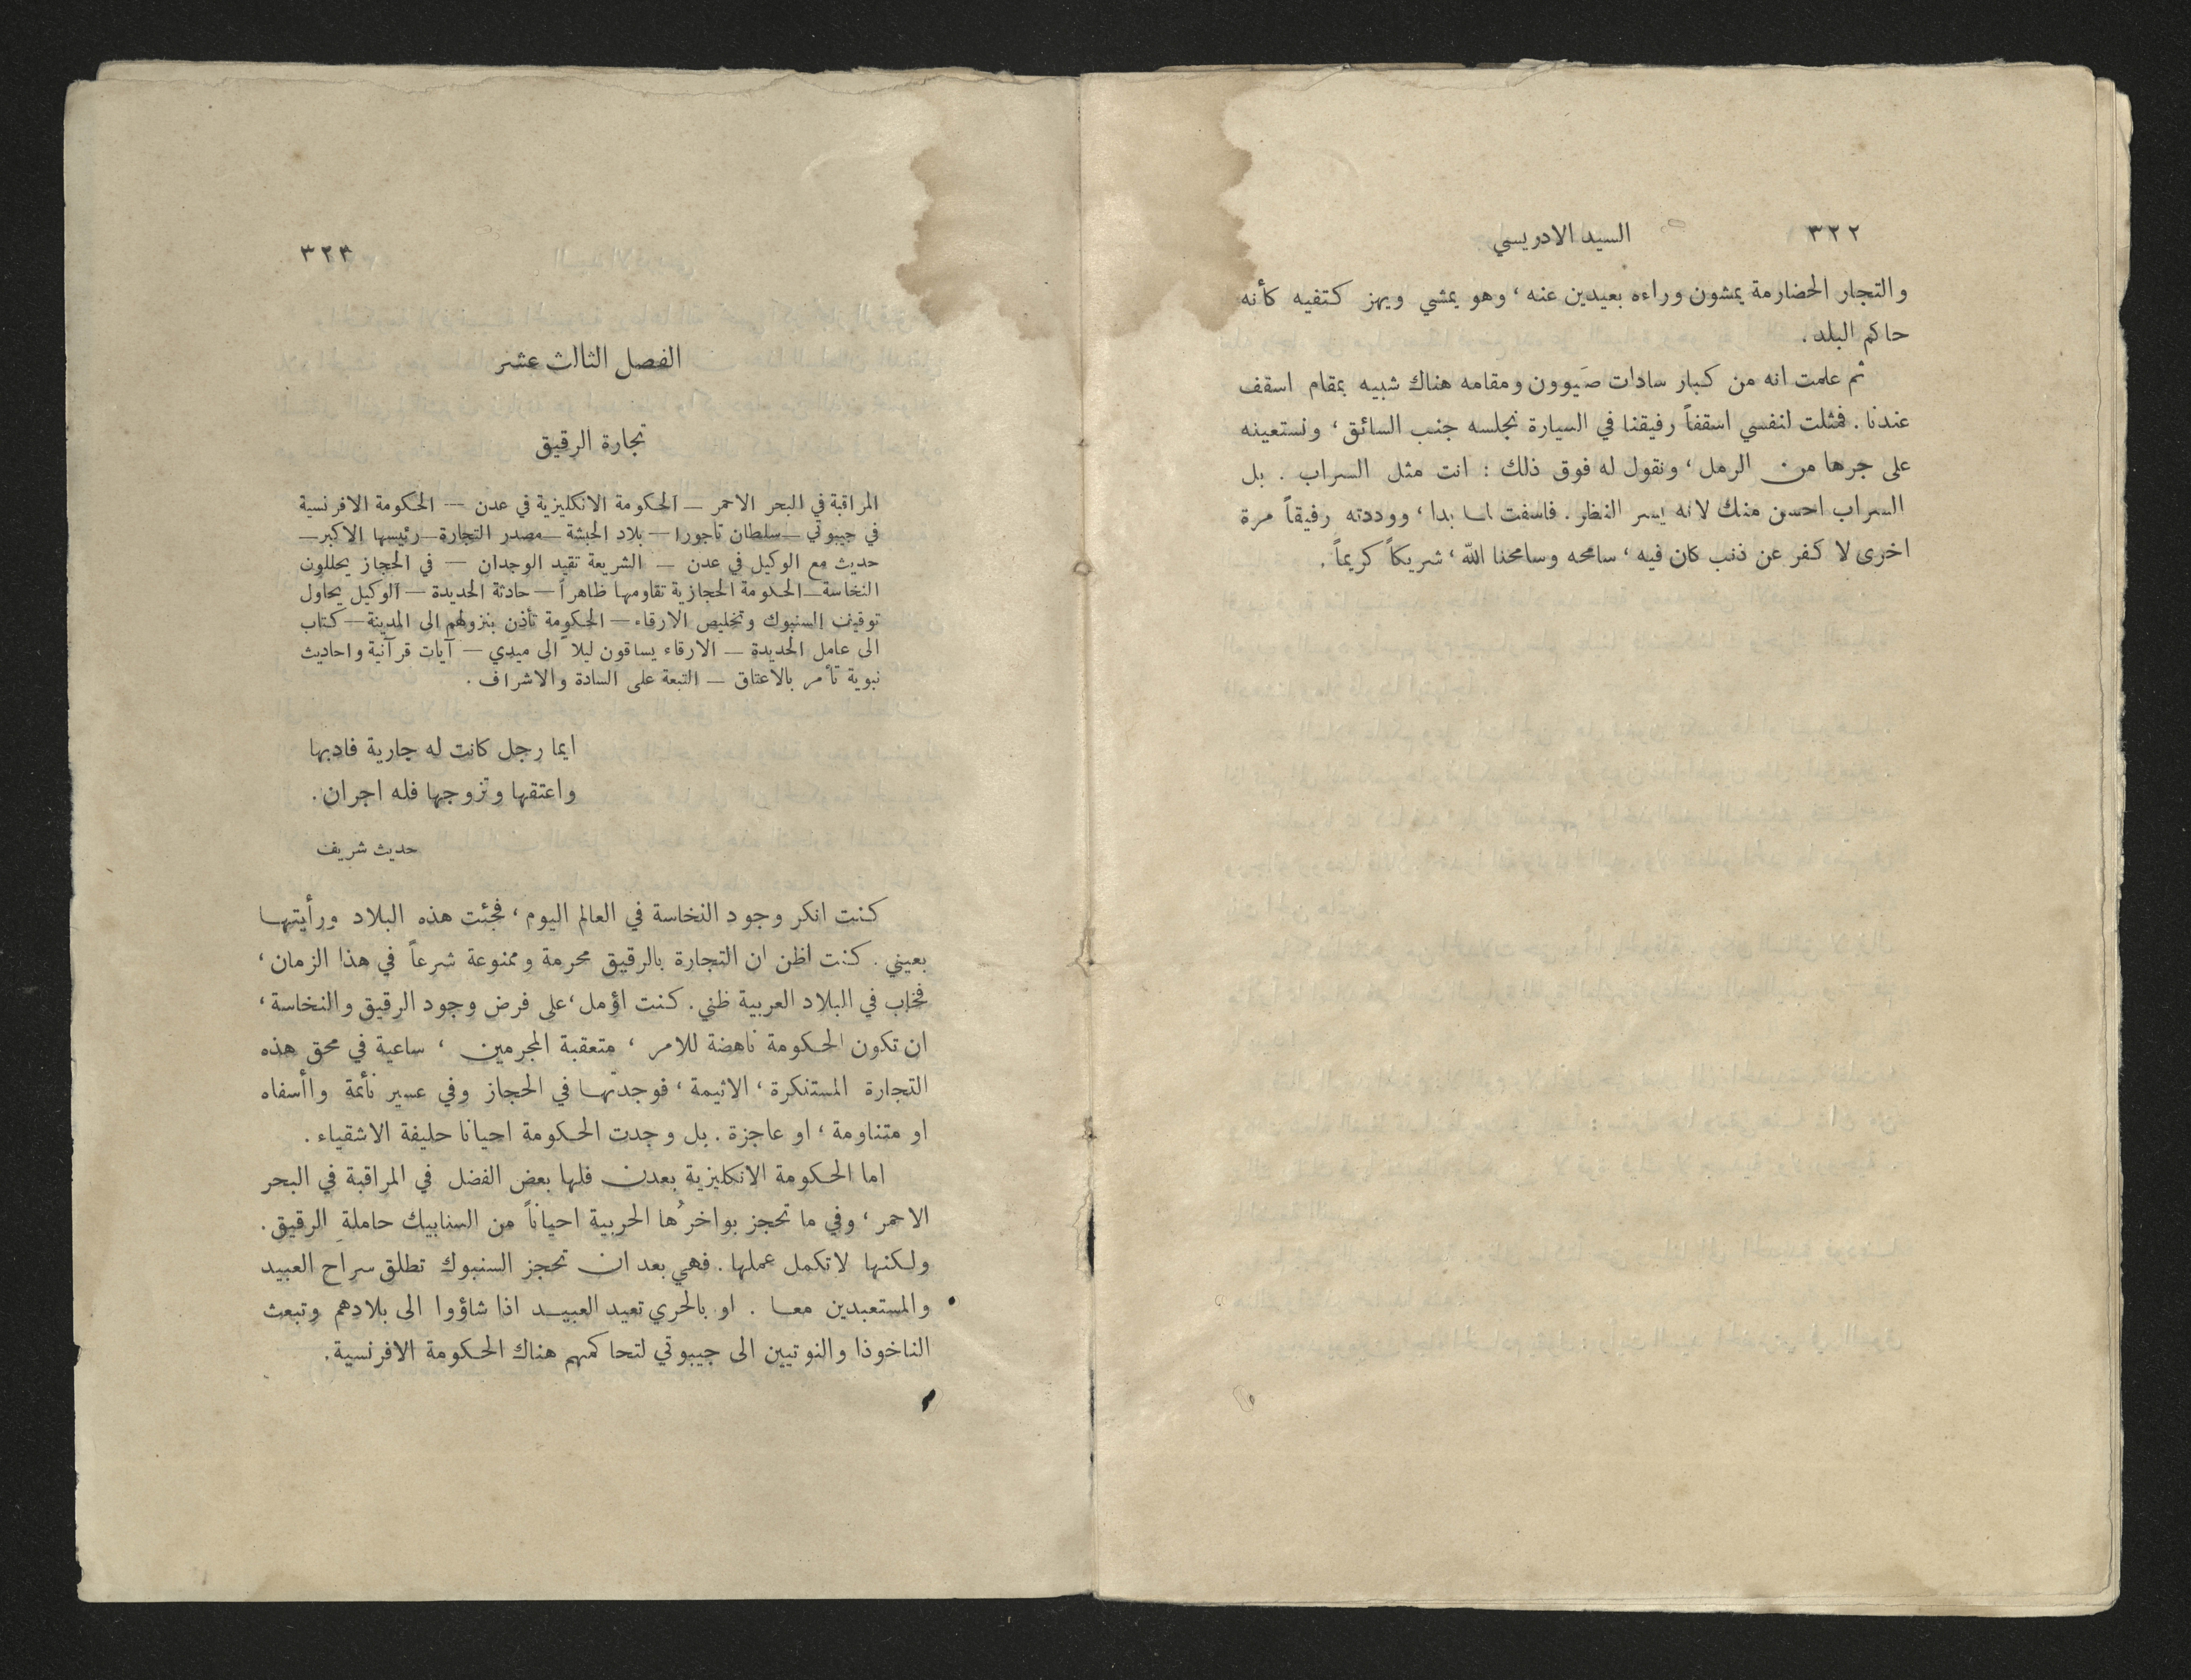 ٣٢٢
السيد الادريسي
والتجار الحضارمة يمشون وراءه بعيدين عنه ، وهو يمشي ويهز كتفيه كأنه
حاكم البلد .
ثم علمت انه من كبار سادات صَيوون ومقامه هناك شبيه بمقام اسقف
عندنا . فمثلت لنفسي اسقفاً رفيقنا في السيارة نجلسه جنب السائق ، ونستعينه
على جرها من الرمل ، ونقول له فوق ذلك : انت مثل السراب . بل
السراب احسن منك لانه يسر النظر . فاسفت لما بدا ، ووددته رفيقاً مرة
اخرى لا كفر عن ذنب كان فيه ، سامحه وسامحنا الله ، شريكاً كريماً .
٣٢٣
الفصل الثالث عشر
تجارة الرقيق
المراقبة في البحر الاحمر — الحكومة الانكليزية في عدن — الحكومة الافرنسية
في جيبوتي — سلطان تاجورا — بلاد الحبشة — مصدر التجارة — رئيسها الاكبر —
حديث مع الوكيل في عدن — الشريعة تقيد الوجدان — في الحجاز يحللون
النخاسة — الحكومة الحجازية تقاومها ظاهراً — حادثة الحديدة — الوكيل يحاول
توقيف السنبوك وتخليص الارقاء — الحكومة تأذن بنزولهم الى المدينة — كتاب
الى عامل الحديدة — الارقاء يساقون ليلاً الى ميدي — آيات قرآنية واحاديث
نبوية تأمر بالاعتاق — التبعة على السادة والاشراف .
ايما رجل كانت له جارية فادبها
واعتقها وتزوجها فله اجران .
حديث شريف
كنت انكر وجود النخاسة في العالم اليوم ، فجئت هذه البلاد ورأيتها
بعيني . كنت اظن ان التجارة بالرقيق محرمة وممنوعة شرعاً في هذا الزمان ،
فخاب في البلاد العربية ظني . كنت اؤمل ، على فرض وجود الرقيق والنخاسة ،
ان تكون الحكومة ناهضة للامر ، متعقبة المجرمين ، ساعية في محق هذه
التجارة المستنكرة ، الاثيمة ، فوجدتها في الحجاز وفي عسير نائمة واأسفاه
او متناومة ، او عاجزة . بل وجدت الحكومة احيانا حليفة الاشقياء .
اما الحكومة الانكليزية بعدن فلها بعض الفضل في المراقبة في البحر
الاحمر ، وفي ما تحجز بواخرُها الحربية احياناً من السنابيك حاملةِ الرقيق .
ولكنها لا تكمل عملها . فهي بعد ان تحجز السنبوك تطلق سراح العبيد
والمستعبدين معا . او بالحري تعيد العبيد اذا شاؤوا الى بلادهم وتبعث
الناخوذا والنوتيين الى جيبوتي لتحاكمهم هناك الحكومة الافرنسية .